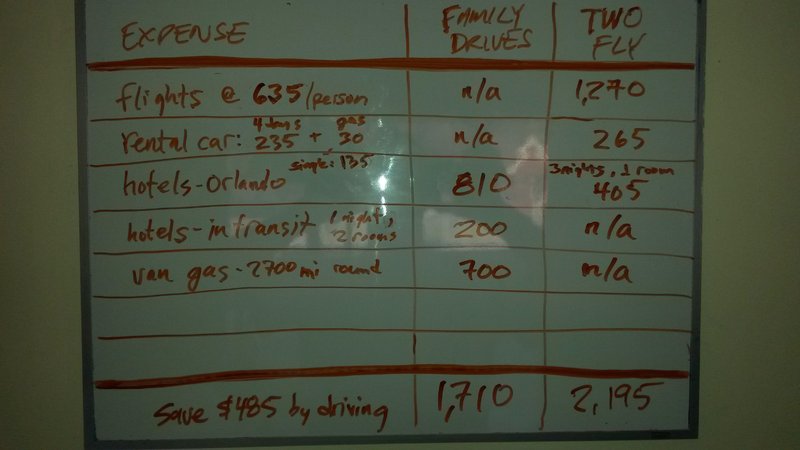 EXPENSE FAMILY DRIVES TWO FLY
flights @ 635/person n/a 1,270
4 days gas
rental car: 235 + 30 n/a 265
single: 135 3 nights, 1 room
hotels-Orlando 810 405
hotels-in transit 1 night, 2 rooms 200 n/a
van gas-2700 mi round 700 n/a
Save $485 by driving 1,710 2,195